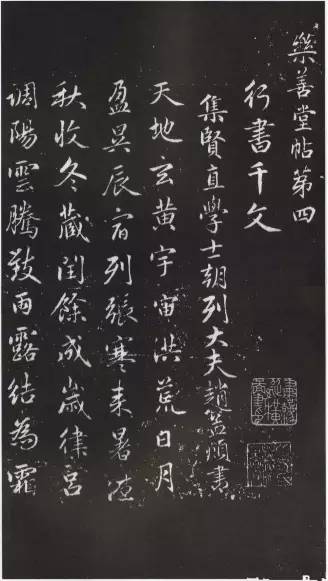 樂善堂帖第四
行書千文
集賢直學士朝列大夫趙孟頫書
天地玄黃宇宙洪荒日月
盈昃辰宿列張寒来暑往
秋收冬藏閏餘成歲律呂
調陽雲騰致雨露結為霜